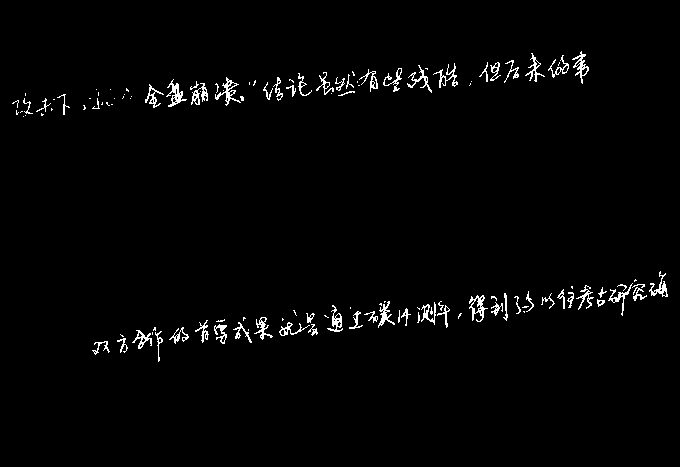 攻击下，全盘崩溃。"结论虽然有些残酷，但后来的事
双方合作的首要成果就是通过碳14测年，得到了与以往考古研究确